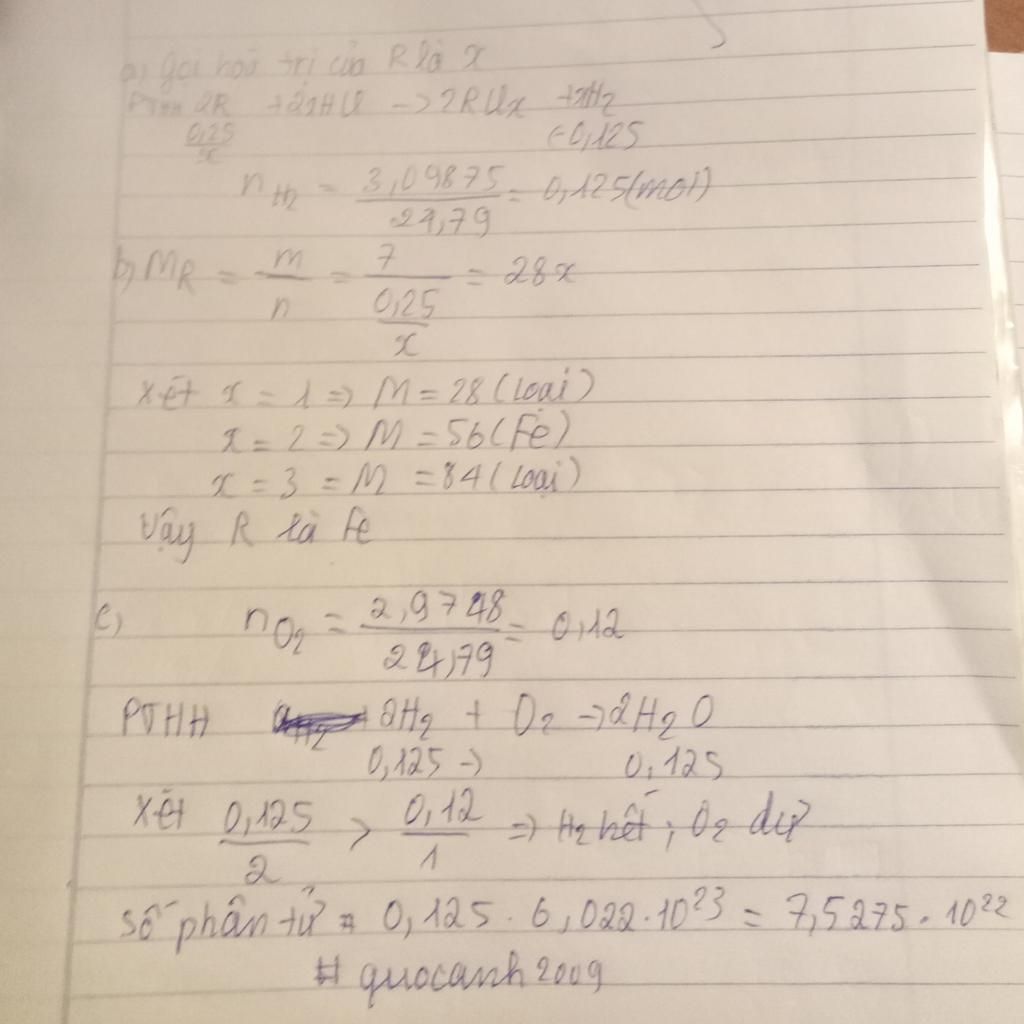 a, Gọi hoá trị của R là x
PTHH 2R + 2xHCl -> 2RClx + xH2
0,25/x <-0,125
nH2 = 3,09875/24,79 = 0,125(mol)
b, MR = m/n = 7/(0,25/x) = 28x
xét x = 1 => M = 28 (Loại)
x = 2 => M = 56 (Fe)
x = 3 = M = 84 (Loại)
Vậy R là Fe
c, nO2 = 2,9748/24,79 = 0,12
PTHH 2H2 + O2 -> 2H2O
0,125 -> 0,125
Xét 0,125/2 > 0,12/1 => H2 hết ; O2 dư
số phân tử = 0,125 . 6,022.10^23 = 7,5275.10^22
# quocanh2009